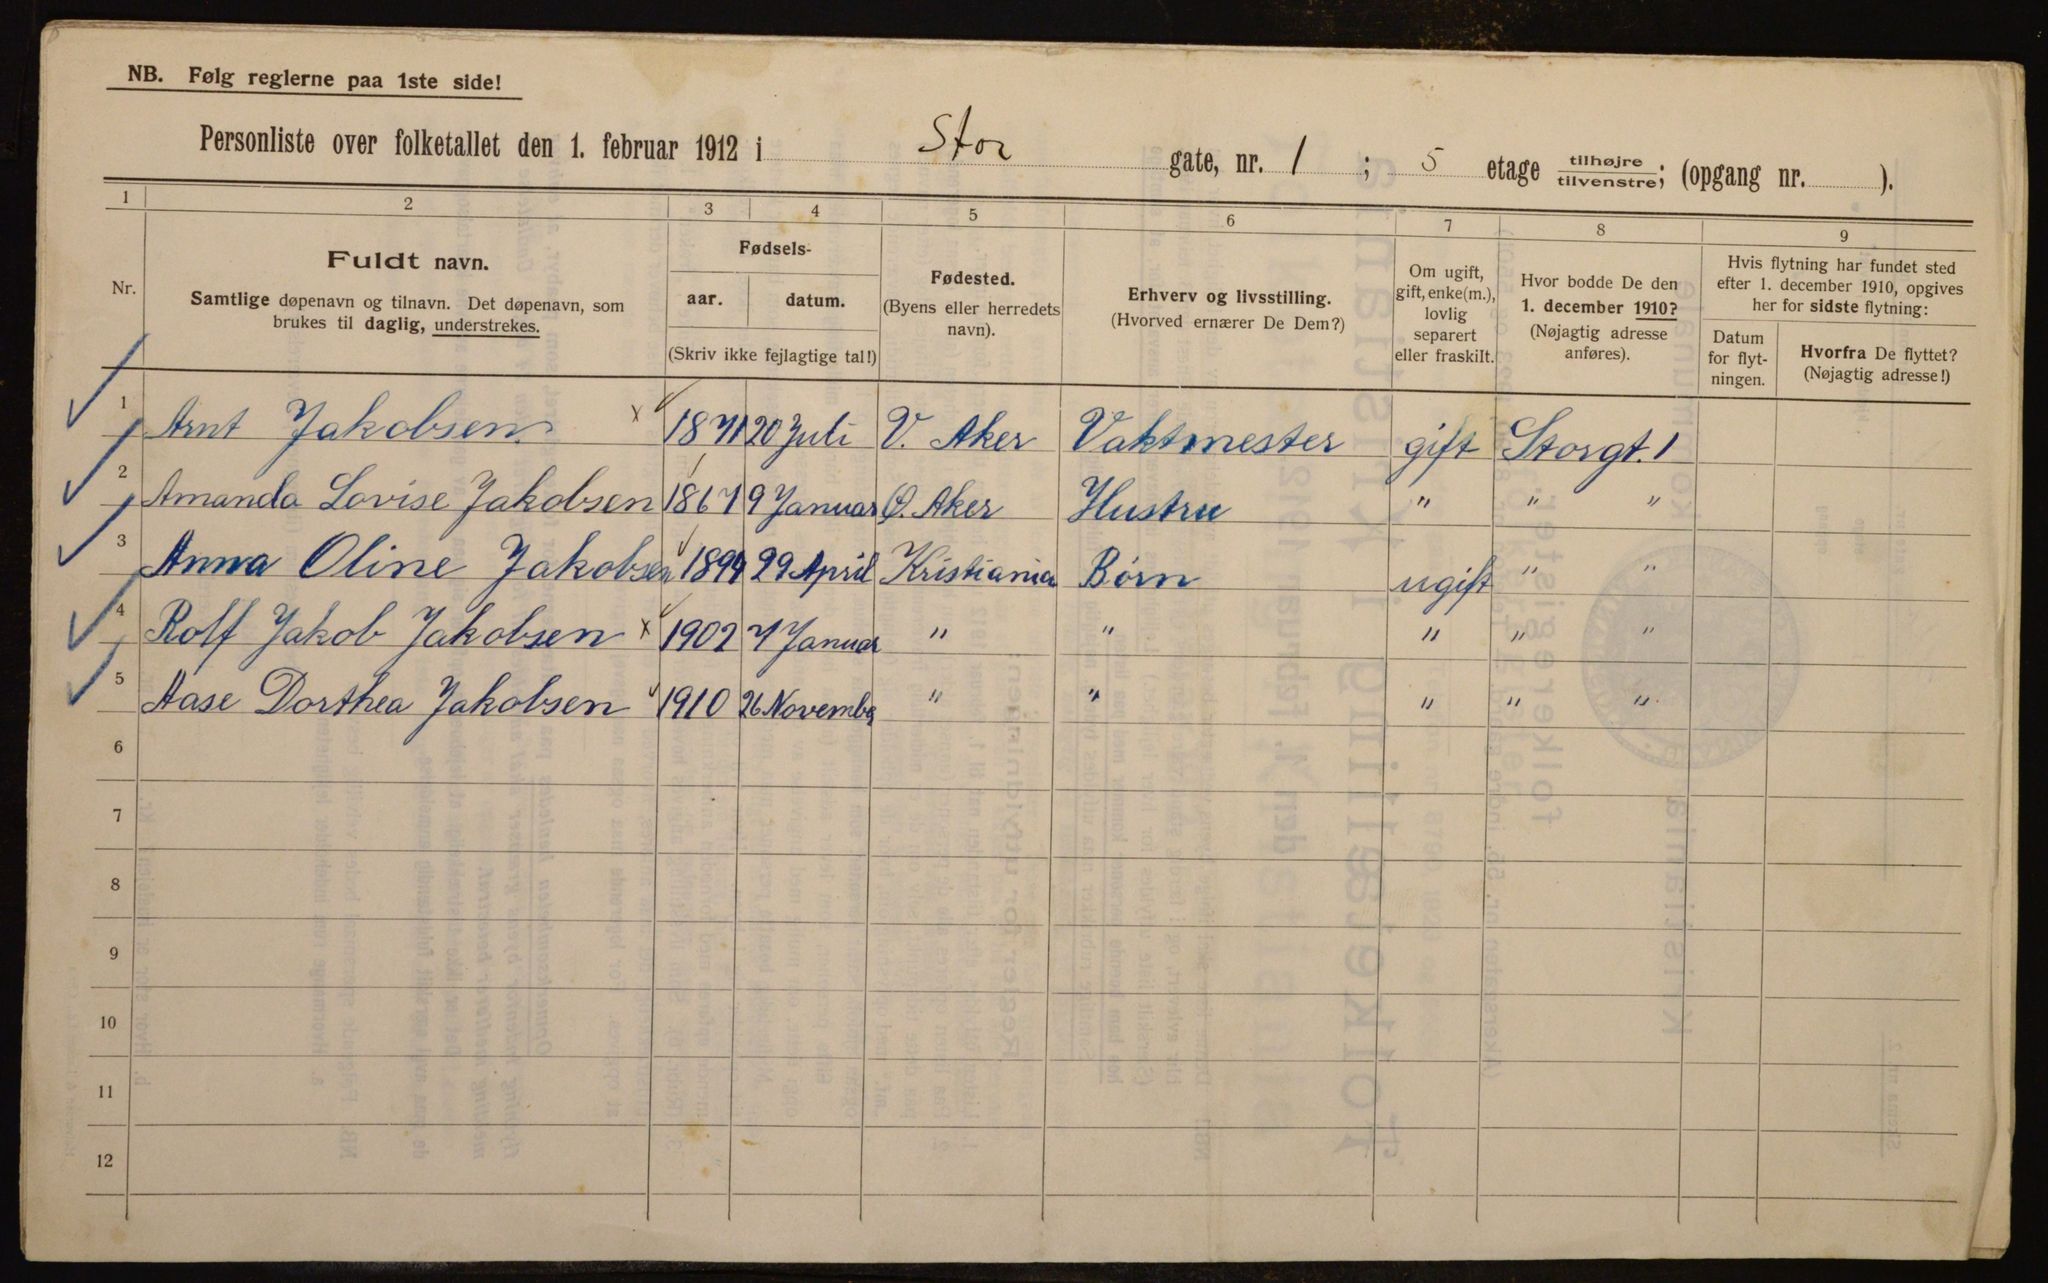 NB. Følg reglerne paa 1ste side!
Personliste over folketallet den 1. februar 1912 i Stor gate, nr. 1 ; 5 etage tilhøjre/tilvenstre; (opgang nr. ).
1 2 3 4 5 6 7 8 9
Nr.
Fuldt navn.
Samtlige døpenavn og tilnavn. Det døpenavn, som
brukes til daglig, understrekes.
Fødsels-
aar. datum.
(Skriv ikke fejlagtige tal!)
Fødested.
(Byens eller herredets
navn).
Erhverv og livsstilling.
(Hvorved ernærer De Dem?)
Om ugift,
gift, enke(m.),
lovlig
separert
eller fraskilt.
Hvor bodde De den
1. december 1910?
(Nøjagtig adresse
anføres).
Hvis flytning har fundet sted
efter 1. december 1910, opgives
her for sidste flytning:
Datum
for flyt-
ningen.
Hvorfra De flyttet?
(Nøjagtig adresse!)
1 Arnt Jakobsen 1871 20 Juli V. Aker Vaktmester gift Storgt. 1
2 Amanda Lovise Jakobsen 1867 9 Januar Ø. Aker Hustru " " "
3 Anna Oline Jakobsen 29 April Kristiania Børn ugift " "
4 Rolf Jakob Jakobsen 1902 7 Januar " " " " "
5 Aase Dorthea Jakobsen 1910 26 November " " " " "
6
7
8
9
10
11
12